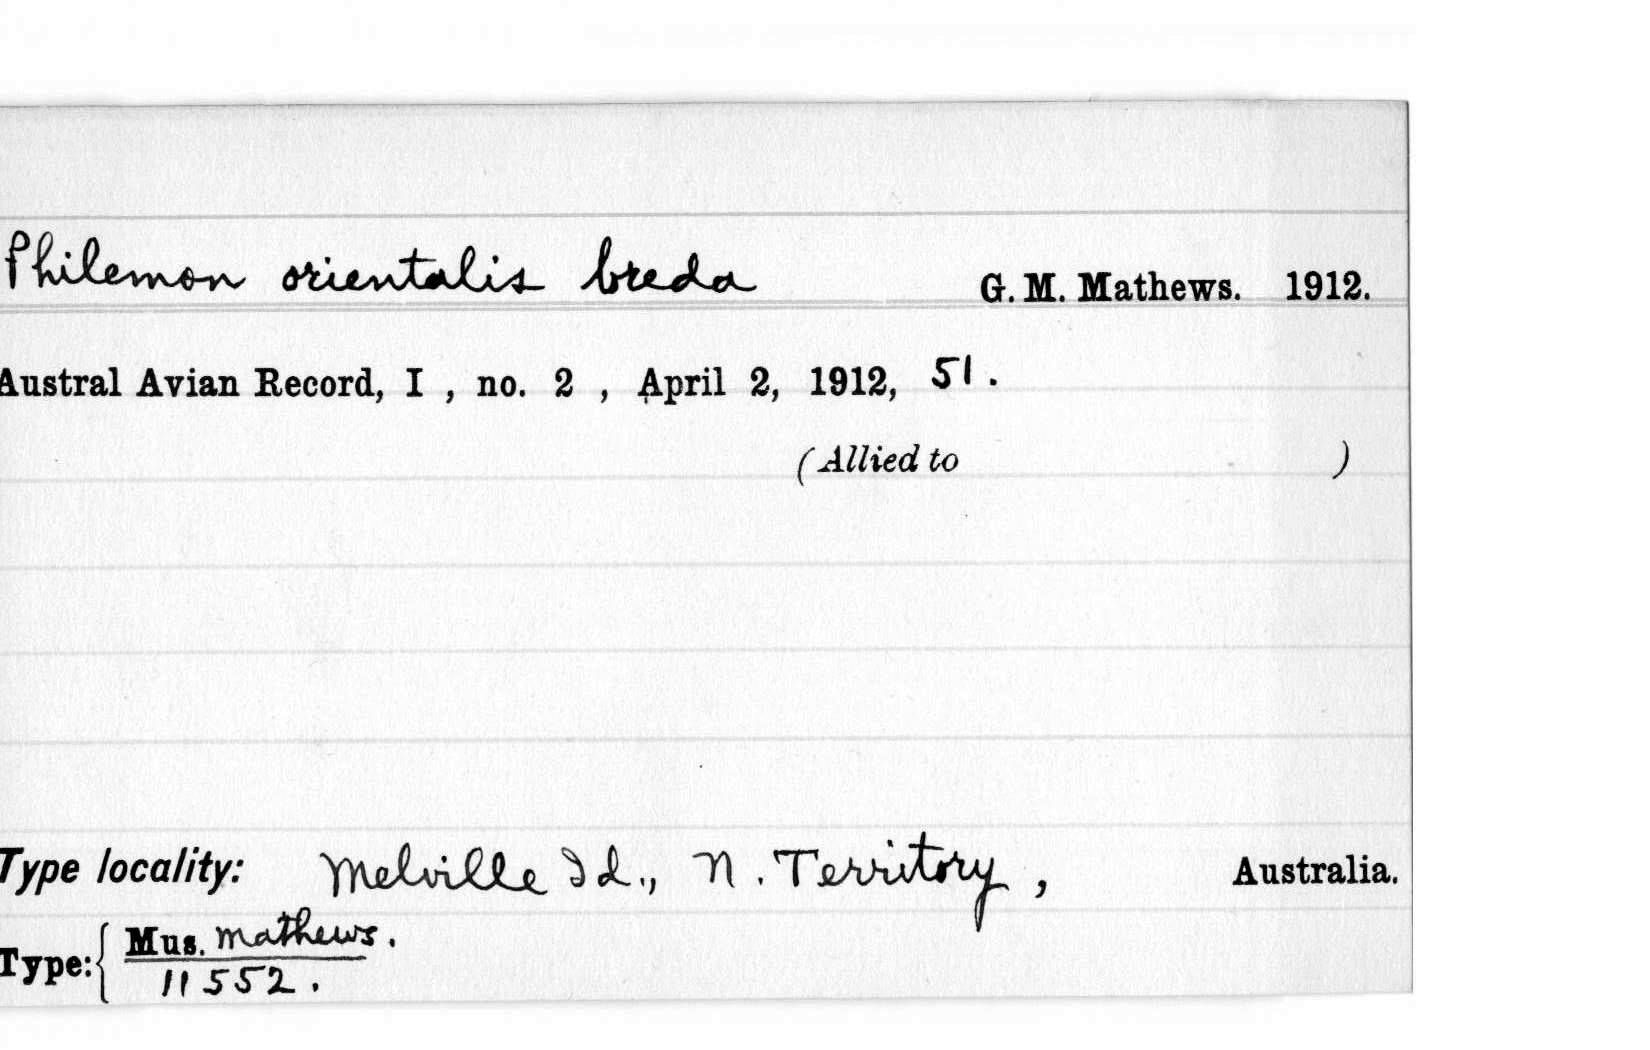 Philemon orientalis breda G. M. Mathews. 1912.
Austral Avian Record, I , no. 2 , April 2, 1912, 51.
(Allied to )
Type locality: Melville Id., N. Territory, Australia.
Type: { Mus. Mathews.
11552.